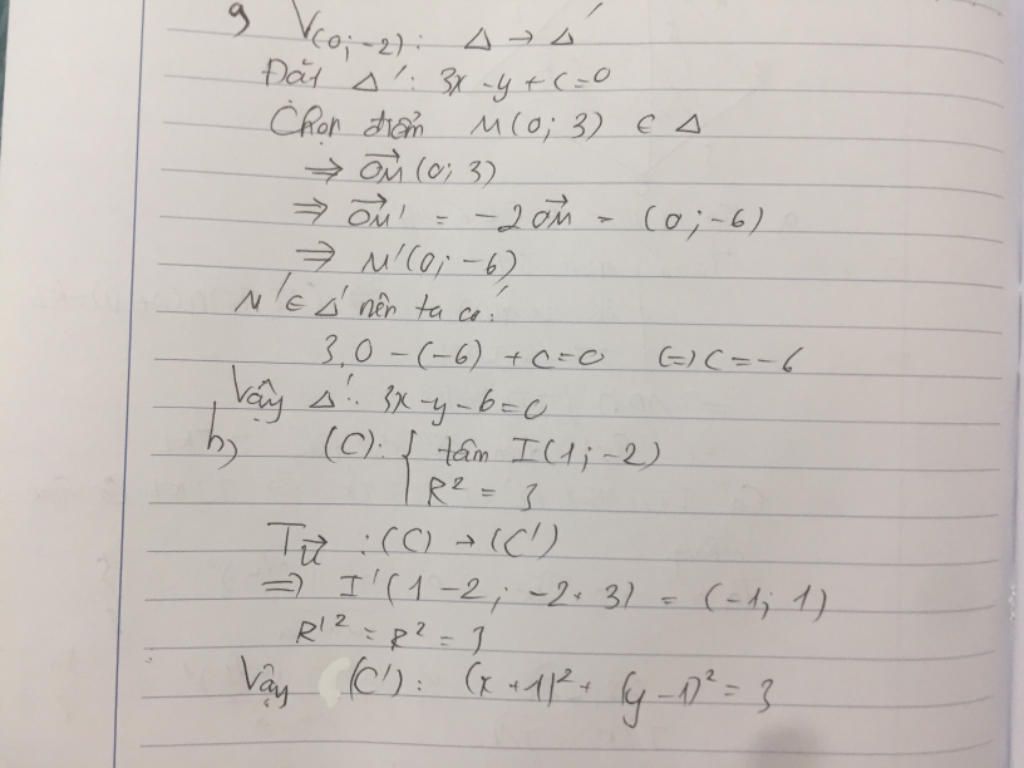 9 V(0;-2): Δ → Δ'
Đặt Δ': 3x - y + c = 0
Chọn điểm M(0; 3) ∈ Δ
⇒ \overrightarrow{OM} (0; 3)
⇒ \overrightarrow{OM'} = -2\overrightarrow{OM} = (0; -6)
⇒ M'(0; -6)
M' ∈ Δ' nên ta có:
3.0 - (-6) + c = 0 (=) c = -6
Vậy Δ': 3x - y - 6 = 0
b) (C): { tâm I(1; -2)
R² = 3
T\vec{u} : (C) → (C')
=) I'(1 - 2; -2 + 3) = (-1; 1)
R'² = R² = 3
Vậy (C'): (x + 1)² + (y - 1)² = 3